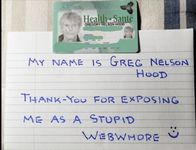 Health • Santé
GREGORY NELSON HOOD
MY NAME IS GREG NELSON
HOOD
THANK-YOU FOR EXPOSING
ME AS A STUPID
WEBWHORE